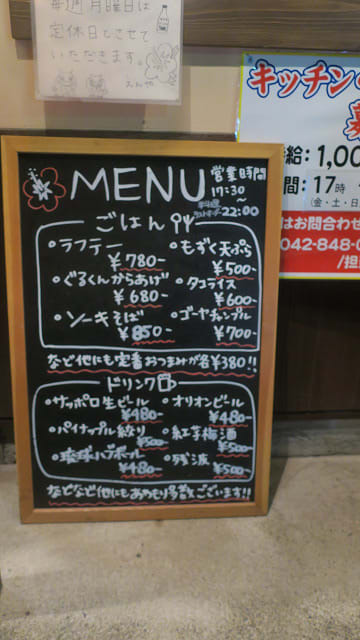 毎週月曜日は
定休日とさせて
いただきます。
MENU
営業時間
17:30
～
22:00
ごはん
・ラフテー
¥780-
・もずく天ぷら
¥500-
・ぐるくんからあげ
¥680-
・タコライス
¥600-
・ソーキそば
¥850-
・ゴーヤチャンプル
¥700-
など他にも定番おつまみが各¥380!!
ドリンク
・サッポロ生ビール
¥480-
・オリオンビール
¥480-
・パイナップル絞り
¥500-
・紅芋梅酒
¥500-
・琉球ハブボール
¥480-
・残波
¥500-
などなど他にもあわもり多数ございます!!
キッチン
給：1,00
間：17時
(金・土・日
はお問合わせ
042-848-0
/担